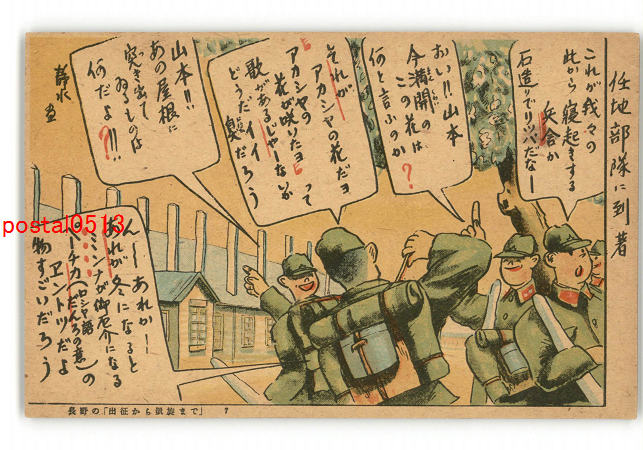 任地部隊に到着
これが我々の
此から寝起きする
兵舎か
石造りで立派だなー
おい!!山本
今満開の
この花は
何と言ふのか
?
それが
アカシヤの花だヨ
アカシヤの
花が咲いたヨって
歌があるじゃーないか
どうだイイ臭だろう
山本!!
あの屋根に
突き出て
ゐるものは
何だよ!!
?
んーあれかー
あれが冬になると
ミンナが御厄介になる
ペーチカ(ロシヤ語だんろの意)の
エントツだよ
物すごいだろう
静水画
長野の「出征から凱旋まで」 7
postal0513